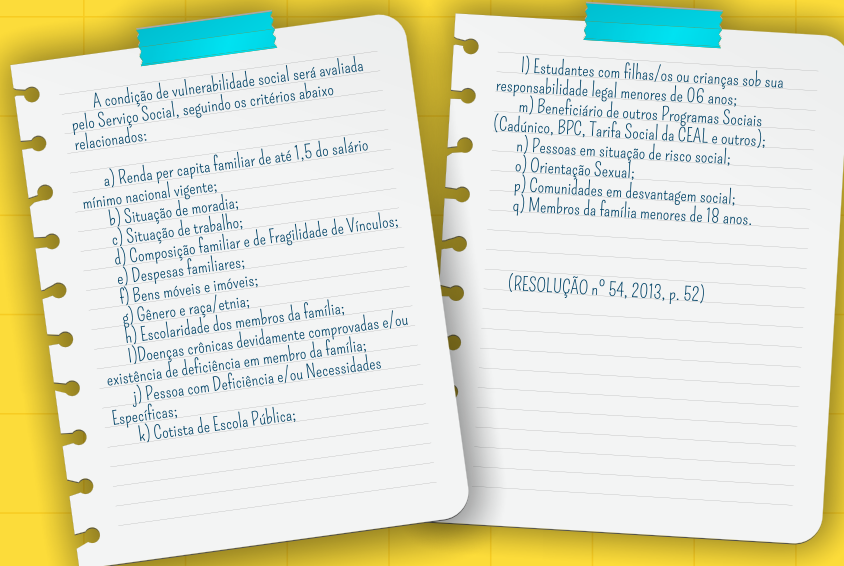 A condição de vulnerabilidade social será avaliada
pelo Serviço Social, seguindo os critérios abaixo
relacionados:
a) Renda per capita familiar de até 1,5 do salário
mínimo nacional vigente;
b) Situação de moradia;
c) Situação de trabalho;
d) Composição familiar e de Fragilidade de Vínculos;
e) Despesas familiares;
f) Bens móveis e imóveis;
g) Gênero e raça/etnia;
h) Escolaridade dos membros da família;
I)Doenças crônicas devidamente comprovadas e/ou
existência de deficiência em membro da família;
j) Pessoa com Deficiência e/ou Necessidades
Específicas;
k) Cotista de Escola Pública;
l) Estudantes com filhas/os ou crianças sob sua
responsabilidade legal menores de 06 anos;
m) Beneficiário de outros Programas Sociais
(Cadúnico, BPC, Tarifa Social da CEAL e outros);
n) Pessoas em situação de risco social;
o) Orientação Sexual;
p) Comunidades em desvantagem social;
q) Membros da família menores de 18 anos.
(RESOLUÇÃO nº 54, 2013, p. 52)